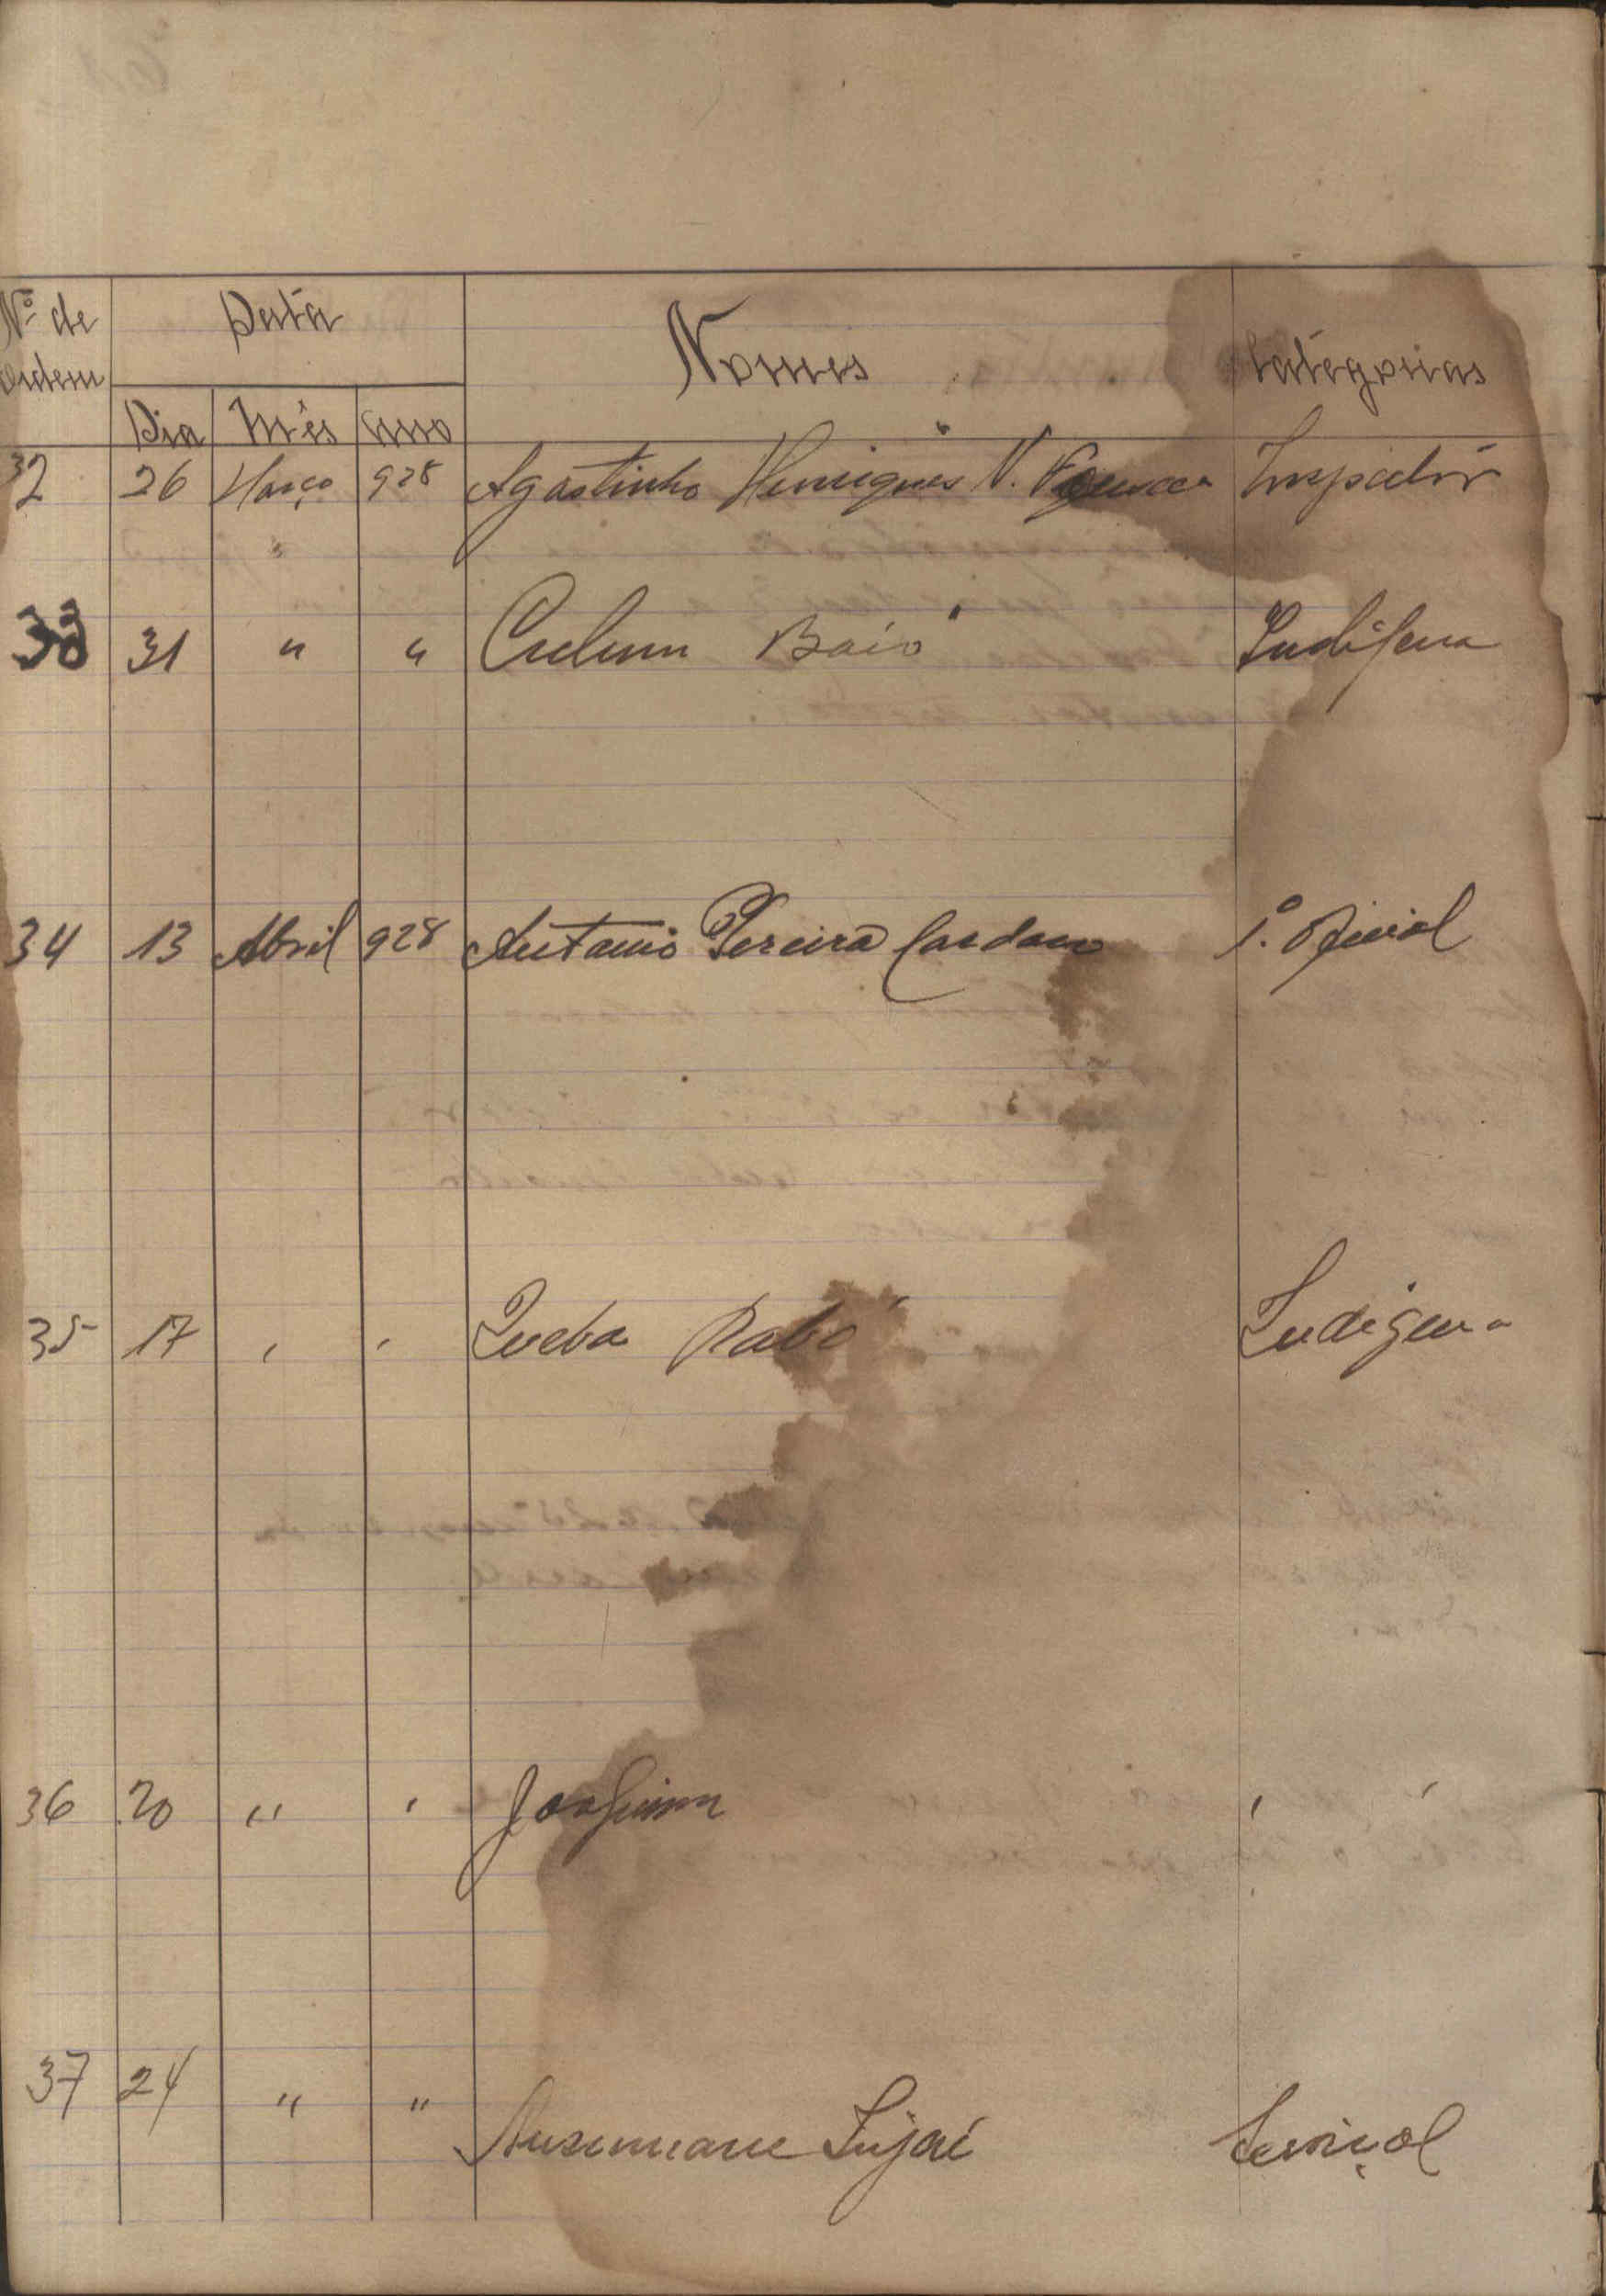 Nº de ordem Data Nomes Categorias
Dia Mês Ano
32 26 Março 928 Agostinho Henriques V. Fonseca Inspector
33 31 " " Baió Indigena
34 13 Abril 928 Antonio Pereira Cardoso 1.º Oficial
35 17 " " Queba Indigena
36 20 " " Joaquim "
37 24 " " Serviçal